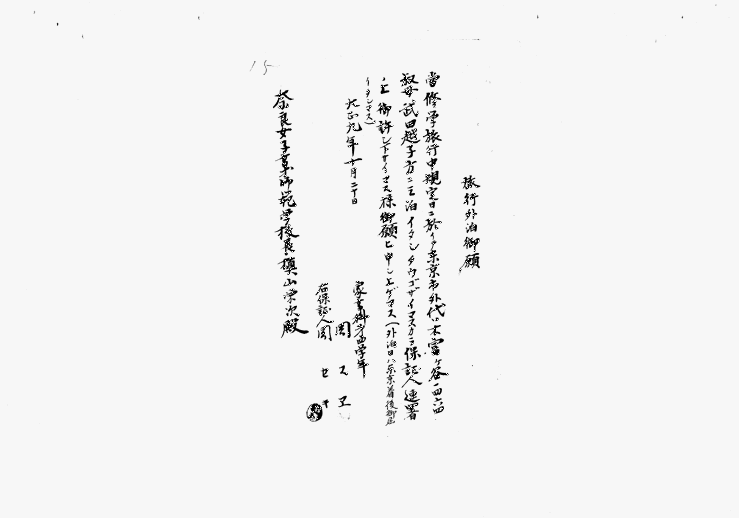 15
旅行外泊御願
當修学旅行中規定日ニ於イテ東京市外代々木富ヶ谷一四六四
叔母武田越子方ニ一泊イタシタウゴザイマスカラ保証人連署ノ
上御許シ下サイマス様御願ヒ申シ上ゲマス(外泊日ハ東京着後御届
イタシマス)
大正九年十月二十日
家事科第四学年
関スヱ
右保証人関セキ
奈良女子高等師範学校長槇山栄次殿